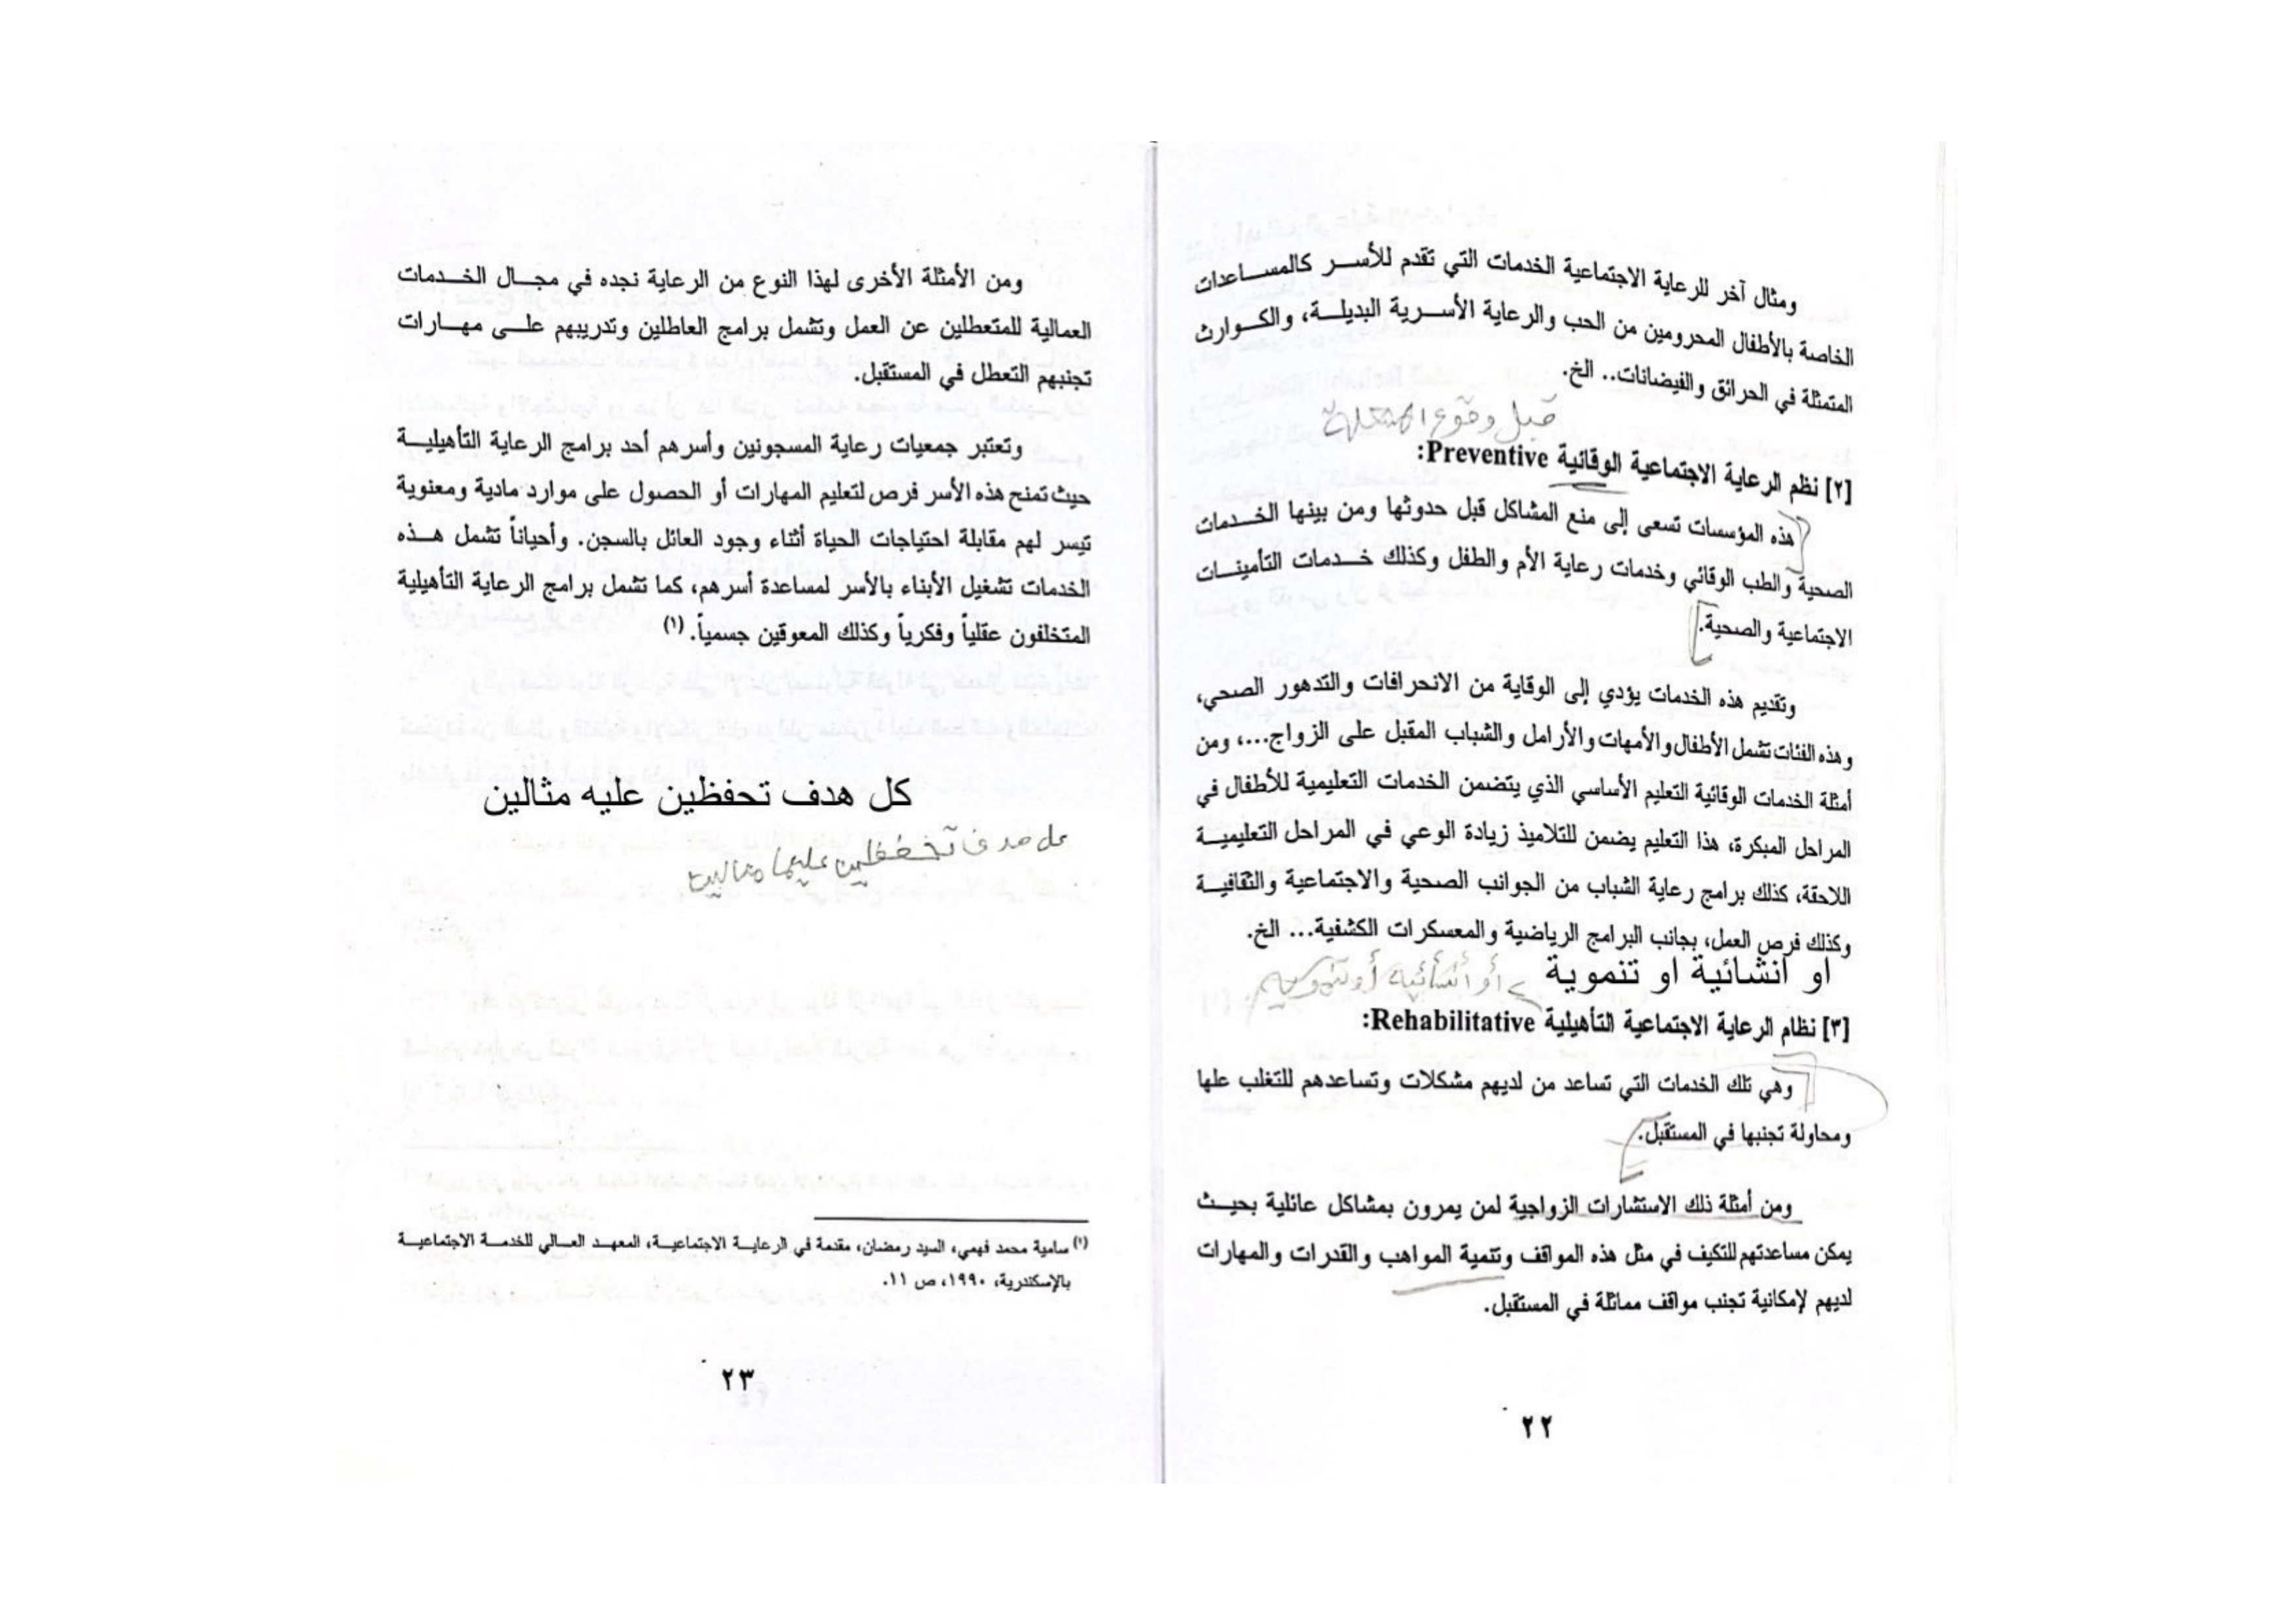 ومثال آخر للرعاية الاجتماعية الخدمات التي تقدم للأسر كالمساعدات
الخاصة بالأطفال المحرومين من الحب والرعاية الأسرية البديلة، والكوارث
المتمثلة في الحرائق والفيضانات.. الخ.
قبل وقوع المشكلة
[٢] نظم الرعاية الاجتماعية الوقائية Preventive:
هذه المؤسسات تسعى إلى منع المشاكل قبل حدوثها ومن بينها الخدمات
الصحية والطب الوقائي وخدمات رعاية الأم والطفل وكذلك خدمات التأمينات
الاجتماعية والصحية.
وتقديم هذه الخدمات يؤدي إلى الوقاية من الانحرافات والتدهور الصحي،
وهذه الفئات تشمل الأطفال والأمهات والأرامل والشباب المقبل على الزواج...، ومن
أمثلة الخدمات الوقائية التعليم الأساسي الذي يتضمن الخدمات التعليمية للأطفال في
المراحل المبكرة، هذا التعليم يضمن للتلاميذ زيادة الوعي في المراحل التعليمية
اللاحقة، كذلك برامج رعاية الشباب من الجوانب الصحية والاجتماعية والثقافية
وكذلك فرص العمل، بجانب البرامج الرياضية والمعسكرات الكشفية... الخ.
او انشائية او تنموية أو انشائية أو تنموية
[٣] نظام الرعاية الاجتماعية التأهيلية Rehabilitative:
وهي تلك الخدمات التي تساعد من لديهم مشكلات وتساعدهم للتغلب علها
ومحاولة تجنبها في المستقبل.
ومن أمثلة ذلك الاستشارات الزواجية لمن يمرون بمشاكل عائلية بحيث
يمكن مساعدتهم للتكيف في مثل هذه المواقف وتنمية المواهب والقدرات والمهارات
لديهم لإمكانية تجنب مواقف مماثلة في المستقبل.
٢٢
ومن الأمثلة الأخرى لهذا النوع من الرعاية نجده في مجال الخدمات
العمالية للمتعطلين عن العمل وتشمل برامج العاطلين وتدريبهم على مهارات
تجنبهم التعطل في المستقبل.
وتعتبر جمعيات رعاية المسجونين وأسرهم أحد برامج الرعاية التأهيلية
حيث تمنح هذه الأسر فرص لتعليم المهارات أو الحصول على موارد مادية ومعنوية
تيسر لهم مقابلة احتياجات الحياة أثناء وجود العائل بالسجن. وأحياناً تشمل هذه
الخدمات تشغيل الأبناء بالأسر لمساعدة أسرهم، كما تشمل برامج الرعاية التأهيلية
المتخلفون عقلياً وفكرياً وكذلك المعوقين جسمياً. (١)
كل هدف تحفظين عليه مثالين
كل هدف تحفظين عليها مثالين
(١) سامية محمد فهمي، السيد رمضان، مقدمة في الرعاية الاجتماعية، المعهد العالي للخدمة الاجتماعية
بالإسكندرية، ١٩٩٠، ص ١١.
٢٣